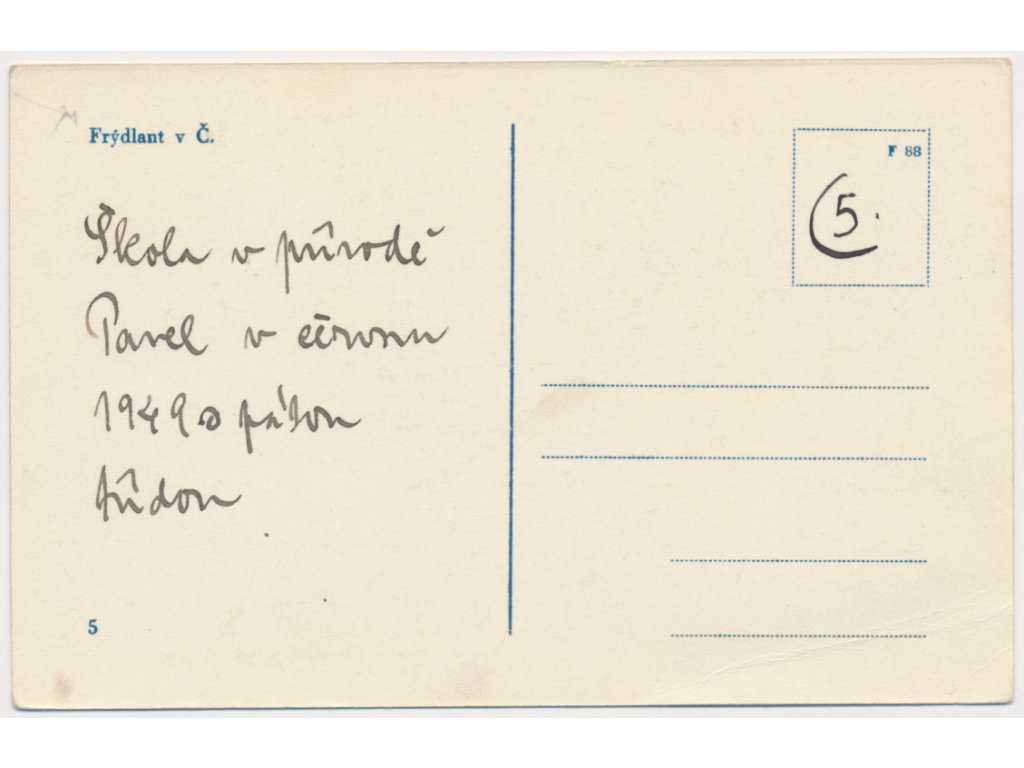 Frýdlant v Č.
F 88
5.
Škola v přírodě
Pavel v červnu
1949 s pátou
třídou
5